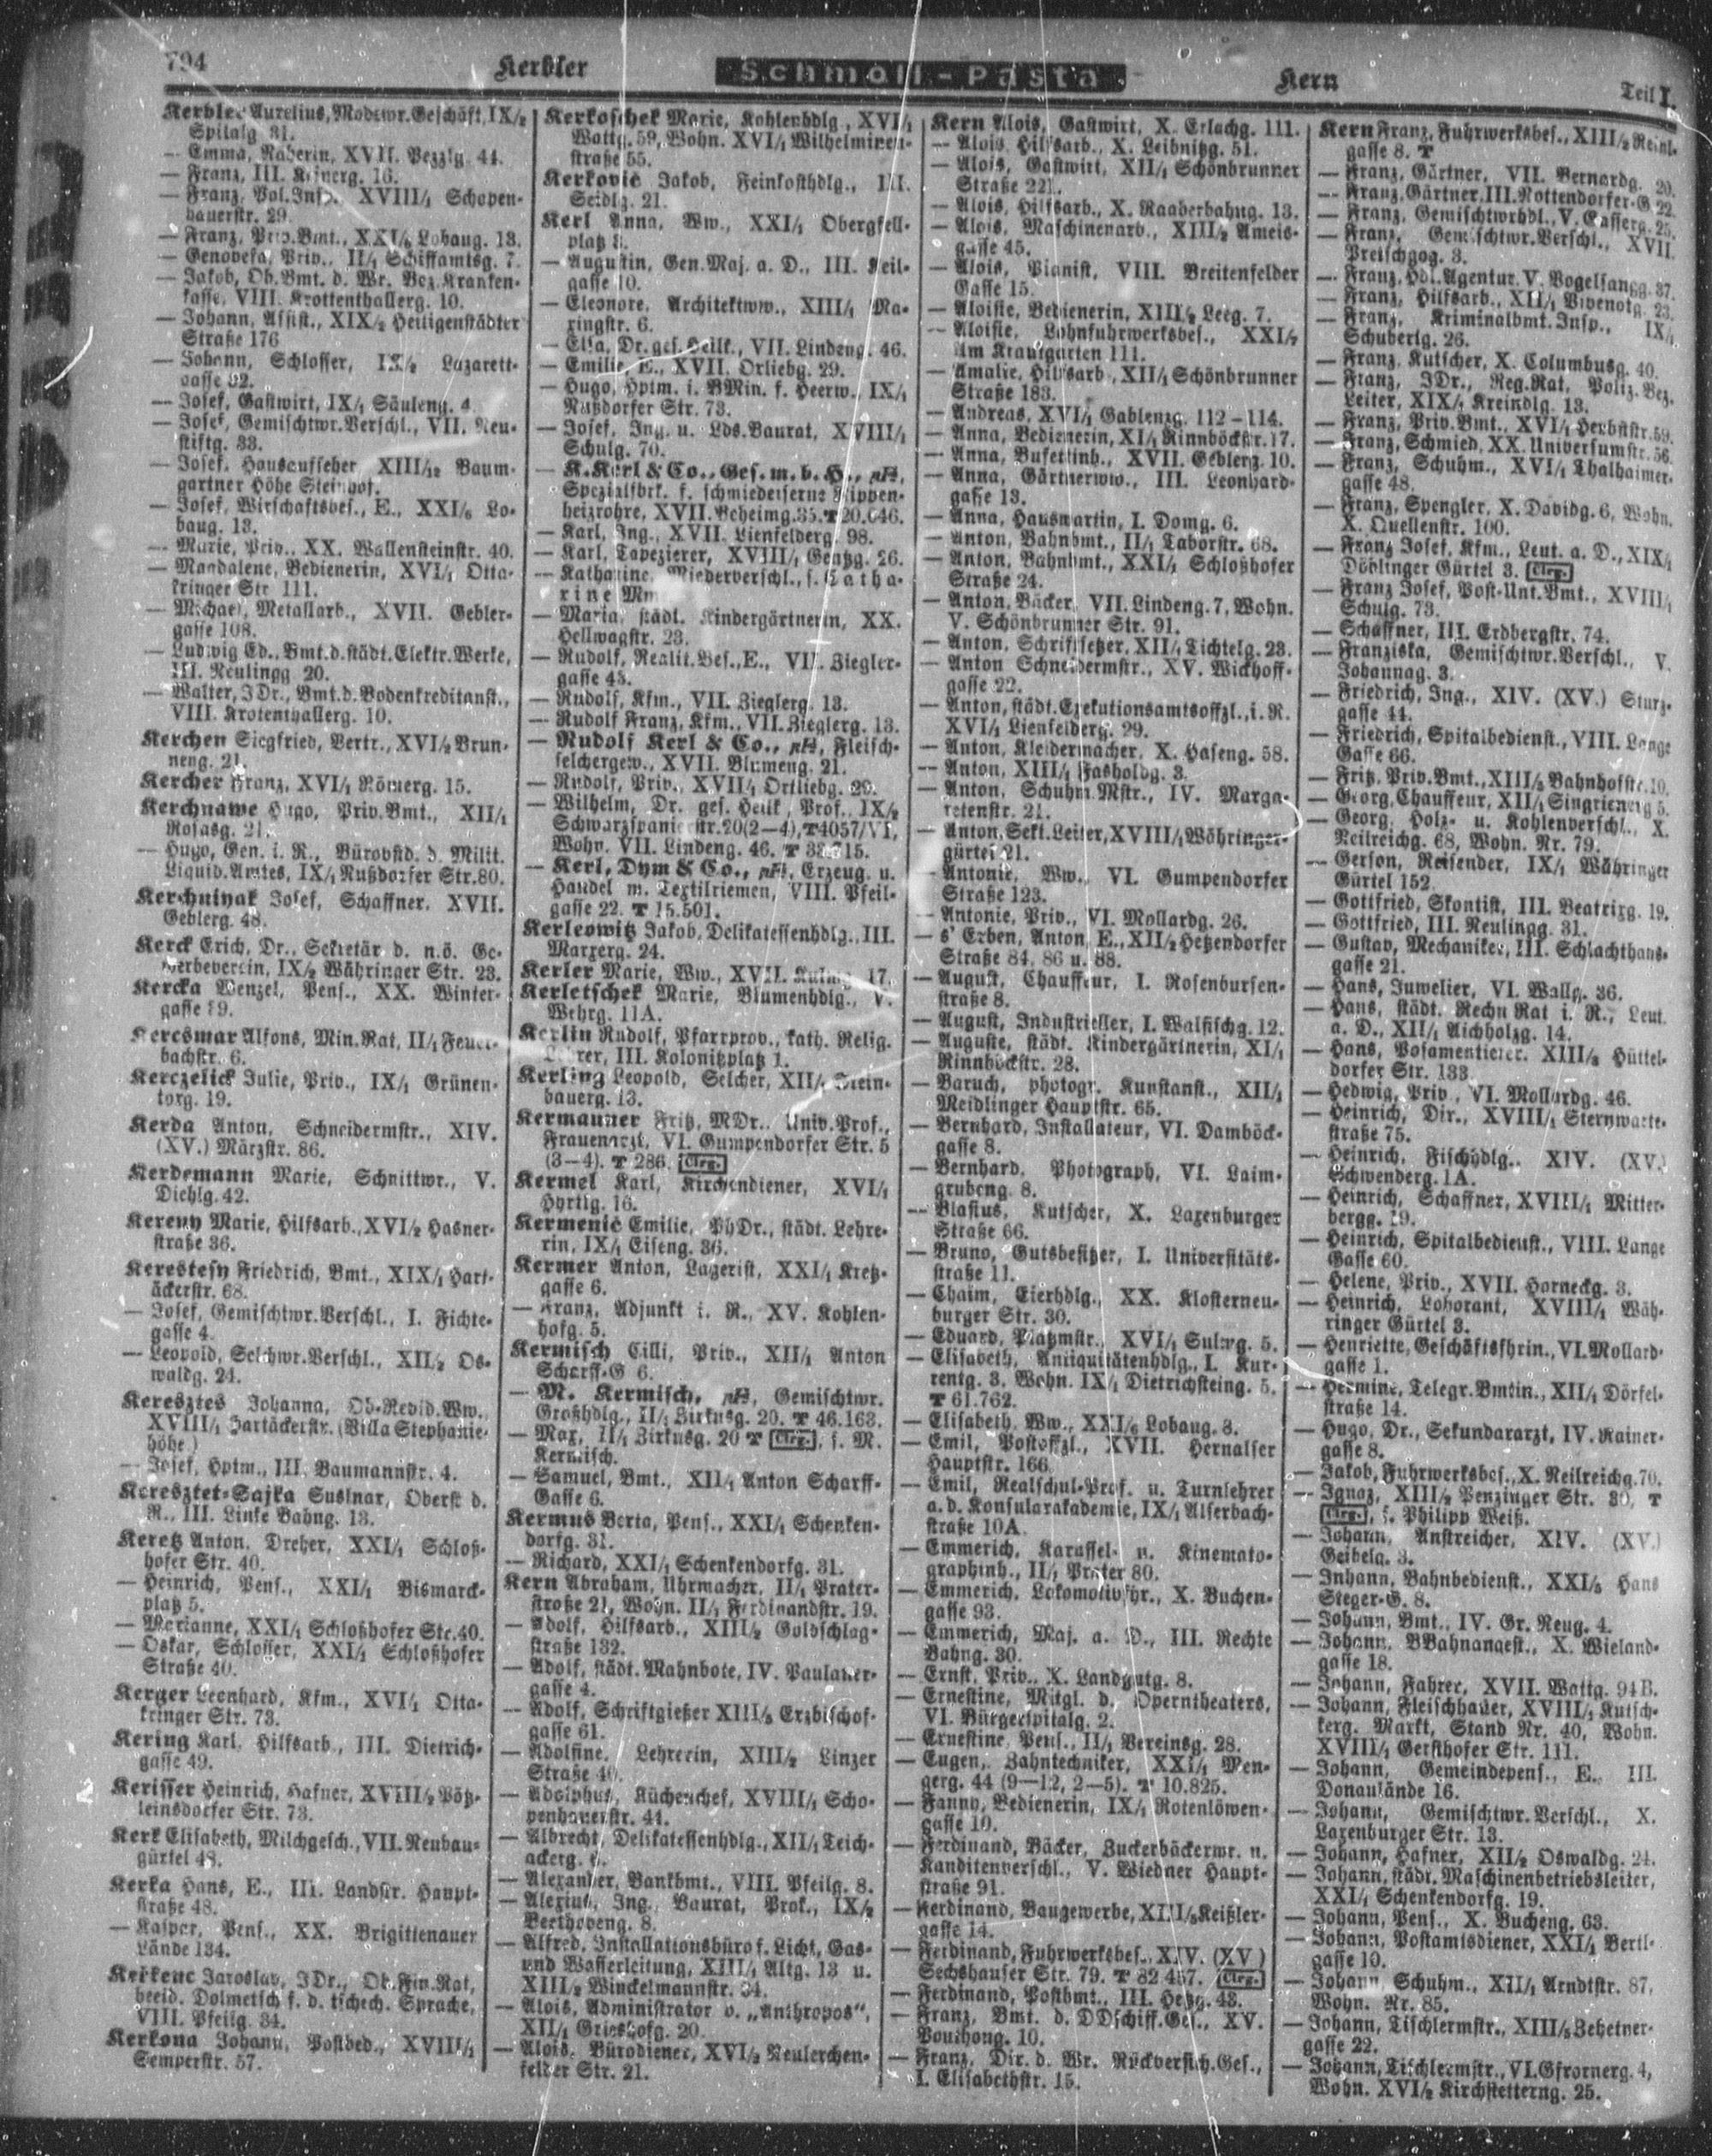 794 Kerbler Schmoll-Pasta Kern Teil I.
Kerbler Aurelius, Modewr.Geschäft, IX/2
Spitalg. 31.
— Emma, Näherin, XVII. Pezzlg. 44.
— Franz, III. 16.
— Franz, Pol.Insp. XVIII/1 Schopen-
hauerstr. 29.
— Franz, Priv.Bmt., XXI/6 Lobaug. 13.
— Genovefa, Priv., II/1 Schiffamtsg. 7.
— Jakob, Ob.Bmt. d. Wr. Bez.Kranken-
kasse, VIII. Krottenthallerg. 10.
— Johann, Assist., XIX/2 Heiligenstädter
Straße 176
— Johann, Schlosser, IX/2 Lazarett-
gasse 32.
— Josef, Gastwirt, IX/1 Säuleng. 4.
— Josef, Gemischtwr.Verschl., VII. Neu-
stiftg. 33.
— Josef, Hausaufseher, XIII/12 Baum-
gartner Höhe Steinhof.
— Josef, Wirschaftsbes., E., XXI/6 Lo-
baug. 13.
— Marie, Priv., XX. Wallensteinstr. 40.
— Magdalene, Bedienerin, XVI/1 Otta-
kringer Str. 111.
— Michael, Metallarb., XVII. Gebler-
gasse 108.
— Ludwig Ed., Bmt.d.städt.Elektr.Werke,
III. Neulingg. 20.
— Walter, JDr., Bmt.d.Bodenkreditanst.,
VIII. Krotenthallerg. 10.
Kerchen Siegfried, Vertr., XVI/2 Brun-
neng. 21.
Kercher Franz, XVI/1 Römerg. 15.
Kerchnawe Hugo, Priv.Bmt., XII/1
Rosasg. 21.
— Hugo, Gen. i. R., Bürovstd. d. Milit.
Liquid.Amtes, IX/1 Nußdorfer Str.80.
Kerchninak Josef, Schaffner, XVII.
Geblerg. 48.
Kerck Erich, Dr., Sekretär d. n.ö. Ge-
werbeverein, IX/2 Währinger Str. 23.
Kercka Wenzel, Pens., XX. Winter-
gasse 29.
Kercsmar Alfons, Min.Rat, II/1 Feuer-
bachstr. 6.
Kerczelick Julie, Priv., IX/1 Grünen-
torg. 19.
Kerda Anton, Schneidermstr., XIV.
(XV.) Märzstr. 86.
Kerdemann Marie, Schnittwr., V.
Diehlg. 42.
Kereny Marie, Hilfsarb., XVI/2 Hasner-
straße 36.
Kerestesy Friedrich, Bmt., XIX/1 Hart-
äckerstr. 68.
— Josef, Gemischtwr.Verschl., I. Fichte-
gasse 4.
— Leopold, Selchwr.Verschl., XII/2 Os-
waldg. 24.
Keresztes Johanna, Ob.Revid.Ww.,
XVIII/1 Hartäckerstr. (Villa Stephanie-
höhe.)
— Josef, Hptm., III. Baumannstr. 4.
Keresztet-Sajka Susinar, Oberst d.
R., III. Linke Bahng. 13.
Keretz Anton, Dreher, XXI/1 Schloß-
hofer Str. 40.
— Heinrich, Pens., XXI/1 Bismarck-
platz 5.
— Marianne, XXI/1 Schloßhofer Str.40.
— Oskar, Schlosser, XXI/1 Schloßhofer
Straße 40.
Kerger Leonhard, Kfm., XVI/1 Otta-
kringer Str. 73.
Kering Karl, Hilfsarb., III. Dietrich-
gasse 49.
Kerisser Heinrich, Hafner, XVIII/2 Pötz-
leinsdorfer Str. 73.
Kerk Elisabeth, Milchgesch., VII. Neubau-
gürtel 48.
Kerka Hans, E., III. Landstr. Haupt-
straße 48.
— Kaspar, Pens., XX. Brigittenauer
Lände 134.
Kerkenc Jaroslav, JDr., Ob.Fin.Rat,
beeid. Dolmetsch f. d. tschech. Sprache,
VIII. Pfeilg. 34.
Kerkona Johann, Postbed., XVIII/1
Semperstr. 57.
Kerkoschek Marie, Kohlenhdlg., XVI/1
Wattg. 59, Wohn. XVI/1 Wilhelminen-
straße 55.
Kerkovic Jakob, Feinkosthdlg., III.
Seidlg. 21.
Kerl Anna, Ww., XXI/1 Obergfell-
platz 8.
— Augustin, Gen.Maj. a. D., III. Keil-
gasse 10.
— Eleonore, Architektww., XIII/1 Ma-
xingstr. 6.
— Elsa, Dr. ges. Heilk., VII. Lindeng. 46.
— Emilie, E., XVII. Ortliebg. 29.
— Hugo, Hptm. i. BMin. f. Heerw. IX/1
Nußdorfer Str. 73.
— Josef, Ing. u. Lds.Baurat, XVIII/1
Schulg. 70.
— K. Kerl & Co., Ges. m. b. H.,
Spezialfbrk. f. schmiedeiserne Rippen-
heizrohre, XVII. Beheimg.35. T 20.046.
— Karl, Ing., XVII. Lienfelderg. 98.
— Karl, Tapezierer, XVIII/1 Gentzg. 26.
— Katharine, Miederverschl., s. Catha-
rine
— Maria, städt. Kindergärtnerin, XX.
Hellwagstr. 23.
— Rudolf, Realit.Bes., E., VII. Ziegler-
gasse 43.
— Rudolf, Kfm., VII. Zieglerg. 13.
— Rudolf Franz, Kfm., VII.Zieglerg. 13.
— Rudolf Kerl & Co., Fleisch-
selchergew., XVII. Blumeng. 21.
— Rudolf, Priv., XVII/1 Ortliebg. 29.
— Wilhelm, Dr. ges. Heilk., Prof., IX/2
Schwarzspanierstr.20(2—4), T 4057/VI,
Wohn. VII. Lindeng. 46. T
— Kerl, Dym & Co., Erzeug. u.
Handel m. Textilriemen, VIII. Pfeil-
gasse 22. T 15.501.
Kerleowitz Jakob, Delikatessenhdlg., III.
Marxerg. 24.
Kerler Marie, Ww., XVII. 17.
Kerletschek Marie, Blumenhdlg., V.
Wehrg. 11A.
Kerlin Rudolf, Pfarrprov., kath. Relig.
Lehrer, III. Kolonitzplatz 1.
Kerling Leopold, Selcher, XII/1 Stein-
bauerg. 13.
Kermauner Fritz, MDr., Univ.Prof.,
Frauenarzt, VI. Gumpendorfer Str. 5
(3—4). T 286. Clrg.
Kermel Karl, Kirchendiener, XVI/1
Hyrtlg. 16.
Kermenic Emilie, PhDr., städt. Lehre-
rin, IX/1 Eiseng. 36.
Kermer Anton, Lagerist, XXI/1 Kretz-
gasse 6.
— Franz, Adjunkt i. R., XV. Kohlen-
hofg. 5.
Kermisch Cilli, Priv., XII/1 Anton
Scharff-G 6.
— M. Kermisch, Gemischtwr.
Großhdlg., II/1 Zirkusg. 20. T 46.163.
— Max, II/1 Zirkusg. 20 T Clrg., s. M.
Kermisch.
— Samuel, Bmt., XII/1 Anton Scharff-
Gasse 6.
Kermus Berta, Pens., XXI/1 Schenken-
dorfg. 31.
— Richard, XXI/1 Schenkendorfg. 31.
Kern Abraham, Uhrmacher, II/1 Prater-
straße 21, Wohn. II/1 Ferdinandstr. 19.
— Adolf, Hilfsarb., XIII/2 Goldschlag-
straße 132.
— Adolf, städt. Mahnbote, IV. Paulaner-
gasse 4.
— Adolf, Schriftgießer XIII/5 Erzbischof-
gasse 61.
— Adolfine, Lehrerin, XIII/2 Linzer
Straße 40.
— Adolphus, Küchenchef, XVIII/1 Scho-
penhauerstr. 44.
— Albrecht, Delikatessenhdlg., XII/1 Teich-
ackerg.
— Alexander, Bankbmt., VIII. Pfeilg. 8.
— Alexius, Ing., Baurat, Prok., IX/2
Beethoveng. 8.
— Alfred, Installationsbüro f. Licht, Gas-
und Wasserleitung, XIII/1 Altg. 13 u.
XIII/2 Winckelmannstr. 34.
— Alois, Administrator v. „Anthropos“,
XII/1 Grieshofg. 20.
— Alois, Bürodiener, XVI/2 Neulerchen-
felder Str. 21.
Kern Alois, Gastwirt, X. Erlachg. 111.
— Alois, Hilfsarb., X. Leibnitzg. 51.
— Alois, Gastwirt, XII/1 Schönbrunner
Straße 221.
— Alois, Hilfsarb., X. Raaberbahng. 13.
— Alois, Maschinenarb., XIII/2 Ameis-
gasse 45.
— Alois, Pianist, VIII. Breitenfelder
Gasse 15.
— Aloisie, Bedienerin, XIII/2 Leeg. 7.
— Aloisie, Lohnfuhrwerksbes., XXI/7
Am Krautgarten 111.
— Amalie, Hilfsarb., XII/1 Schönbrunner
Straße 183.
— Andreas, XVI/1 Gablenzg. 112-114.
— Anna, Bedienerin, XI/1 Rinnböckstr.17.
— Anna, Bufettinh., XVII. Geblerg. 10.
— Anna, Gärtnerww., III. Leonhard-
gasse 13.
— Anna, Hauswartin, I. Domg. 6.
— Anton, Bahnbmt., II/1 Taborstr. 68.
— Anton, Bahnbmt., XXI/1 Schloßhofer
Straße 24.
— Anton, Bäcker, VII. Lindeng. 7, Wohn.
V. Schönbrunner Str. 91.
— Anton, Schriftsetzer, XII/1 Tichtelg. 23.
— Anton Schneidermstr., XV. Wickhoff-
gasse 22.
— Anton, städt.Exekutionsamtsoffzl., i. R.
XVI/1 Lienfelderg. 29.
— Anton, Kleidermacher, X. Haseng. 58.
— Anton, XIII/1 Fasholdg. 3.
— Anton, Schuhm.Mstr., IV. Marga-
retenstr. 21.
— Anton, Sekt.Leiter, XVIII/1 Währinger-
gürtel 21.
— Antonie, Ww., VI. Gumpendorfer
Straße 123.
— Antonie, Priv., VI. Mollardg. 26.
— s' Erben, Anton, E., XII/2 Hetzendorfer
Straße 84, 86 u. 88.
— August, Chauffeur, I. Rosenbursen-
straße 8.
— August, Industrieller, I. Walfischg. 12.
— Auguste, städt. Kindergärtnerin, XI/1
Rinnböckstr. 28.
— Baruch, photogr. Kunstanst., XII/1
Meidlinger Hauptstr. 65.
— Bernhard, Installateur, VI. Damböck-
gasse 8.
— Bernhard, Photograph, VI. Laim-
grubeng. 8.
— Blasius, Kutscher, X. Laxenburger
Straße 66.
— Bruno, Gutsbesitzer, I. Universitäts-
straße 11.
— Chaim, Eierhdlg., XX. Klosterneu-
burger Str. 30.
— Eduard, Platzmstr., XVI/1 Sulmg. 5.
— Elisabeth, Antiquitätenhdlg., I. Kur-
rentg. 3. Wohn. IX/1 Dietrichsteing. 5.
T 61.762.
— Elisabeth, Ww., XXI/6 Lobaug. 8.
— Emil, Postoffzl., XVII. Hernalser
Hauptstr. 166
— Emil, Realschul-Prof. u. Turnlehrer
a. d. Konsularakademie, IX/1 Alserbach-
straße 10A.
— Emmerich, Karussel- u. Kinemato-
graphinh., II/1 Prater 80.
— Emmerich, Lokomotivfhr., X. Buchen-
gasse 93.
— Emmerich, Maj. a. D., III. Rechte
Bahng. 30.
— Ernst, Priv., X. Landgutg. 8.
— Ernestine, Mitgl. d. Operntheaters,
VI. Bürgerspitalg. 2.
— Ernestine, Pens., II/1 Vereinsg. 28.
— Eugen, Zahntechniker, XXI/1 Wen-
gerg. 44 (9—12, 2—5). T 10.825.
— Fanny, Bedienerin, IX/1 Rotenlöwen-
gasse 10.
— Ferdinand, Bäcker, Zuckerbäckerwr. u.
Kanditenverschl., V. Wiedner Haupt-
straße 91.
— Ferdinand, Baugewerbe, XIII/5 Keißler-
gasse 14.
— Ferdinand, Fuhrwerksbes., XIV. (XV.)
Sechshauser Str. 79. T 82.457. Clrg.
— Ferdinand, Postbmt., III. Hetzg. 43.
— Franz, Bmt. d. DDschiff.Ges., XV.
Pouthong. 10.
— Franz, Dir. d. Wr. Rückversich.Ges.,
I. Elisabethstr. 15.
Kern Franz, Fuhrwerksbes., XIII/2 Reinl-
gasse 8. T
— Franz, Gärtner, VII. Bernardg. 20.
— Franz, Gärtner, III. Rottendorfer-G 22.
— Franz, Gemischtwrhdl., V. Gasserg. 25.
— Franz, Gemischtwr.Verschl., XVII.
Preischgog. 3.
— Franz, Hdl.Agentur. V. Vogelsangg. 37.
— Franz, Hilfsarb., XII/1 Vivenotg. 23.
— Franz, Kriminalbmt.Insp., IX/1
Schubertg. 26.
— Franz, Kutscher, X. Columbusg. 40.
— Franz, JDr., Reg.Rat, Poliz.Bez.
Leiter, XIX/1 Kreindlg. 13.
— Franz, Priv.Bmt., XVI/1 Herbststr.59.
— Franz, Schmied, XX. Universumstr. 56.
— Franz, Schuhm., XVI/1 Thalhaimer-
gasse 48.
— Franz, Spengler, X. Davidg. 6, Wohn.
X. Quellenstr. 100.
— Franz Josef, Kfm., Leut. a. D., XIX/1
Döblinger Gürtel 3. Clrg.
— Franz Josef, Post-Unt.Bmt., XVIII/1
Schulg. 73.
— Schaffner, III. Erdbergstr. 74.
— Franziska, Gemischtwr.Verschl., V.
Johannag. 3.
— Friedrich, Ing., XIV. (XV.) Sturz-
gasse 44.
— Friedrich, Spitalbedienst., VIII. Lange
Gasse 66.
— Fritz, Priv.Bmt., XIII/5 Bahnhofstr.10.
— Georg, Chauffeur, XII/1 Singrienerg 5.
— Georg, Holz- u. Kohlenverschl., X.
Neilreichg. 68, Wohn. Nr. 79.
— Gerson, Reisender, IX/1 Währinger
Gürtel 152
— Gottfried, Skontist, III. Beatrixg. 19.
— Gottfried, III. Neulingg. 31.
— Gustav, Mechaniker, III. Schlachthaus-
gasse 21.
— Hans, Juwelier, VI. Wallg. 36.
— Hans, städt. Rechn Rat i. R., Leut.
a. D., XII/1 Aichholzg. 14.
— Hans, Posamentierer, XIII/8 Hüttel-
dorfer Str. 133
— Hedwig, Priv., VI. Mollardg. 46.
— Heinrich, Dir., XVIII/1 Sternwarte-
straße 75.
— Heinrich, Fischhdlg., XIV. (XV.)
Schwenderg. 1A.
— Heinrich, Schaffner, XVIII/1 Mitter-
bergg. 19.
— Heinrich, Spitalbedienst., VIII. Lange
Gasse 60.
— Helene, Priv., XVII. Horneckg. 3.
— Heinrich, Laborant, XVIII/1 Wäh-
ringer Gürtel 3.
— Henriette, Geschäftsfhrin., VI. Mollard-
gasse 1.
— Hermine, Telegr.Bmtin., XII/1 Dörfel-
straße 14.
— Hugo, Dr., Sekundararzt, IV. Rainer-
gasse 8.
— Jakob, Fuhrwerksbes., X. Neilreichg.70.
— Ignaz, XIII/2 Penzinger Str. 30, T
Clrg., s. Philipp Weiß.
— Johann, Anstreicher, XIV. (XV.)
Geibelg. 3.
— Johann, Bahnbedienst., XXI/5 Hans
Steger-G. 8.
— Johann, Bmt., IV. Gr. Neug. 4.
— Johann, BBahnangest., X. Wieland-
gasse 18.
— Johann, Fahrer, XVII. Wattg. 94B.
— Johann, Fleischhauer, XVIII/1 Kutsch-
kerg. Markt, Stand Nr. 40, Wohn.
XVIII/1 Gersthofer Str. 111.
— Johann, Gemeindepens., E., III.
Donaulände 16.
— Johann, Gemischtwr.Verschl., X.
Laxenburger Str. 13.
— Johann, Hafner, XII/2 Oswaldg. 24.
— Johann, städt. Maschinenbetriebsleiter,
XXI/1 Schenkendorfg. 19.
— Johann, Pens., X. Bucheng. 63.
— Johann, Postamtsdiener, XXI/1 Bertl-
gasse 10.
— Johann, Schuhm., XII/1 Arndtstr. 87,
Wohn. Nr. 85.
— Johann, Tischlermstr., XIII/5 Zehetner-
gasse 22.
— Johann, Tischlermstr., VI.Gfrornerg. 4,
Wohn. XVI/2 Kirchstetterng. 25.